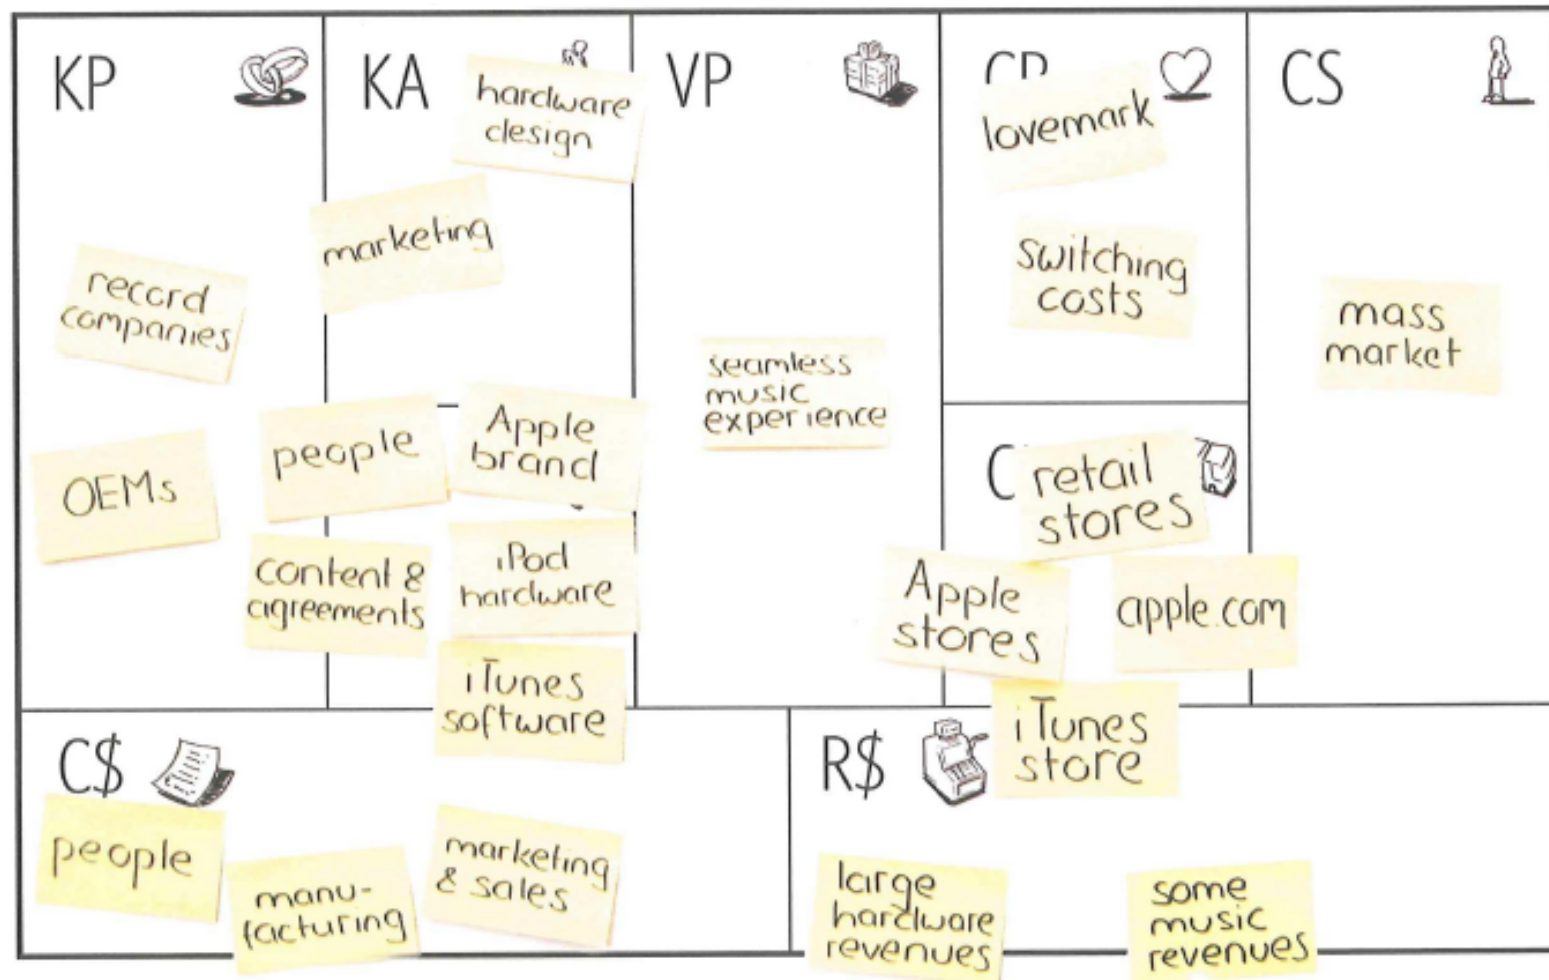 KP
record
companies
OEMs
KA
hardware
design
marketing
people
Apple
brand
content &
agreements
iPod
hardware
iTunes
software
VP
seamless
music
experience
CR
lovemark
switching
costs
C
retail
stores
Apple
stores
apple.com
iTunes
store
CS
mass
market
C$
people
manu-
facturing
marketing
& sales
R$
large
hardware
revenues
some
music
revenues